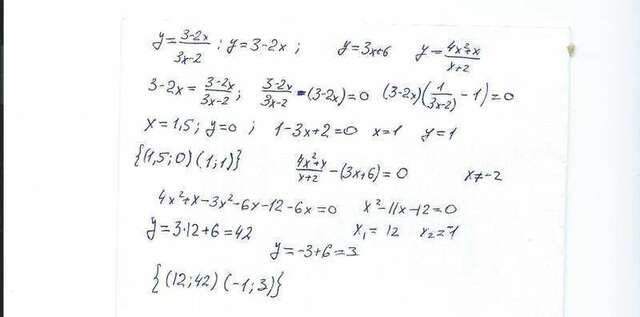 y = (3-2x)/(3x-2) ; y = 3-2x ; y = 3x+6 y = (4x²+x)/(x+2)
3-2x = (3-2x)/(3x-2) ; (3-2x)/(3x-2) - (3-2x) = 0 (3-2x)(1/(3x-2) - 1) = 0
x = 1,5 ; y = 0 ; 1-3x+2 = 0 x = 1 y = 1
{(1,5; 0) (1; 1)} (4x²+x)/(x+2) - (3x+6) = 0 x ≠ -2
4x²+x-3x²-6x-12-6x = 0 x²-11x-12 = 0
y = 3·12+6 = 42 x₁ = 12 x₂ = -1
y = -3+6 = 3
{(12; 42) (-1; 3)}